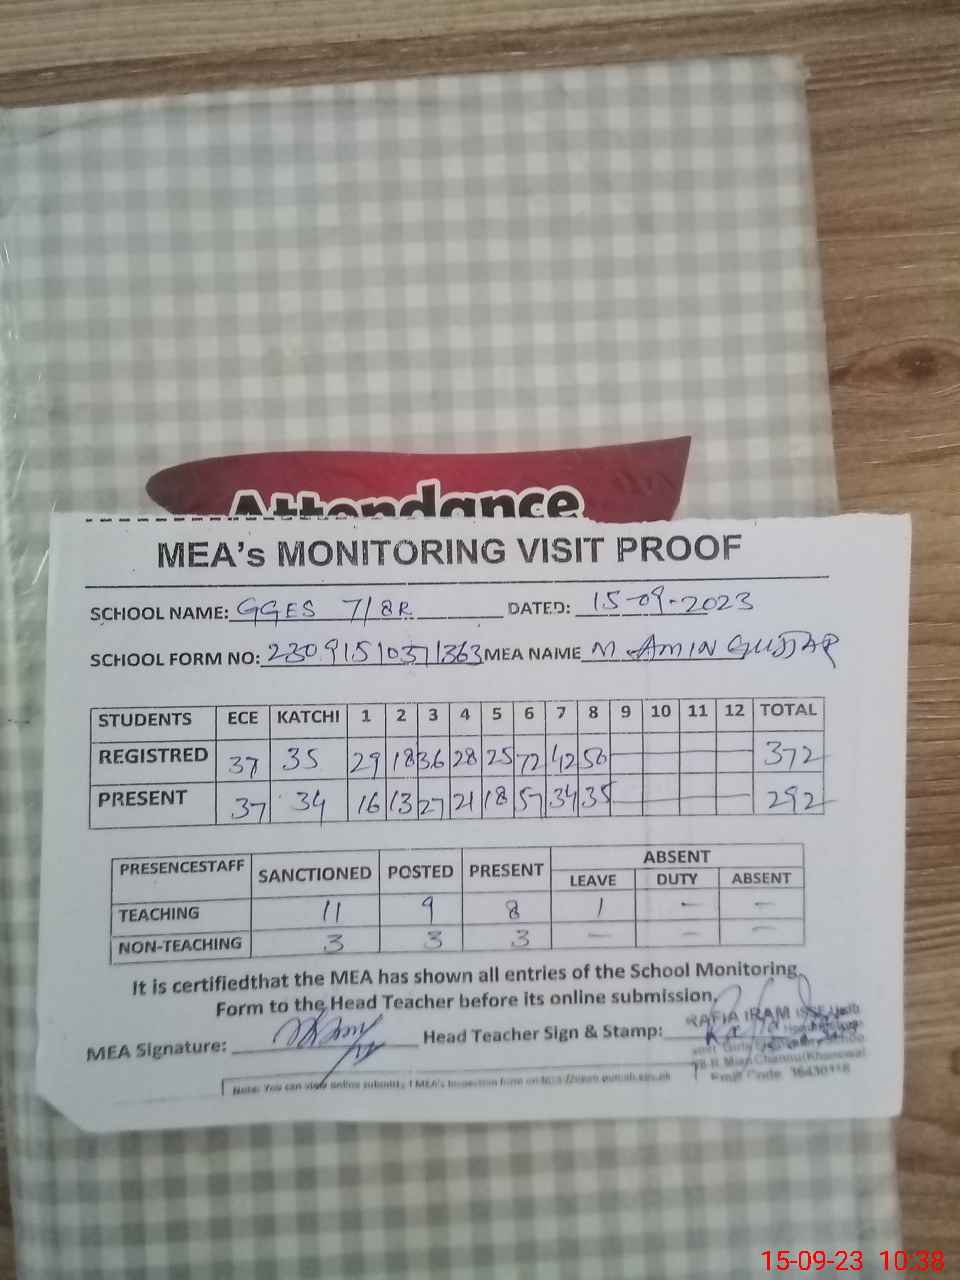 Attendance
MEA's MONITORING VISIT PROOF
SCHOOL NAME: GGES 7/8R DATED: 15-09-2023
SCHOOL FORM NO: 23091510371363 MEA NAME M AMIN GUJJAR
STUDENTS ECE KATCHI 1 2 3 4 5 6 7 8 9 10 11 12 TOTAL
REGISTRED 37 35 29 18 36 28 25 72 42 50 372
PRESENT 37 34 16 13 27 21 18 57 34 35 292
PRESENCESTAFF SANCTIONED POSTED PRESENT ABSENT
LEAVE DUTY ABSENT
TEACHING 11 9 8 1 - -
NON-TEACHING 3 3 3 - - -
It is certifiedthat the MEA has shown all entries of the School Monitoring
Form to the Head Teacher before its online submission.
MEA Signature: Head Teacher Sign & Stamp:
RAFIA IRAM
Mian Channu (Khanewal
Note: You can view online submitted MEA's inspection form on
15-09-23 10:38